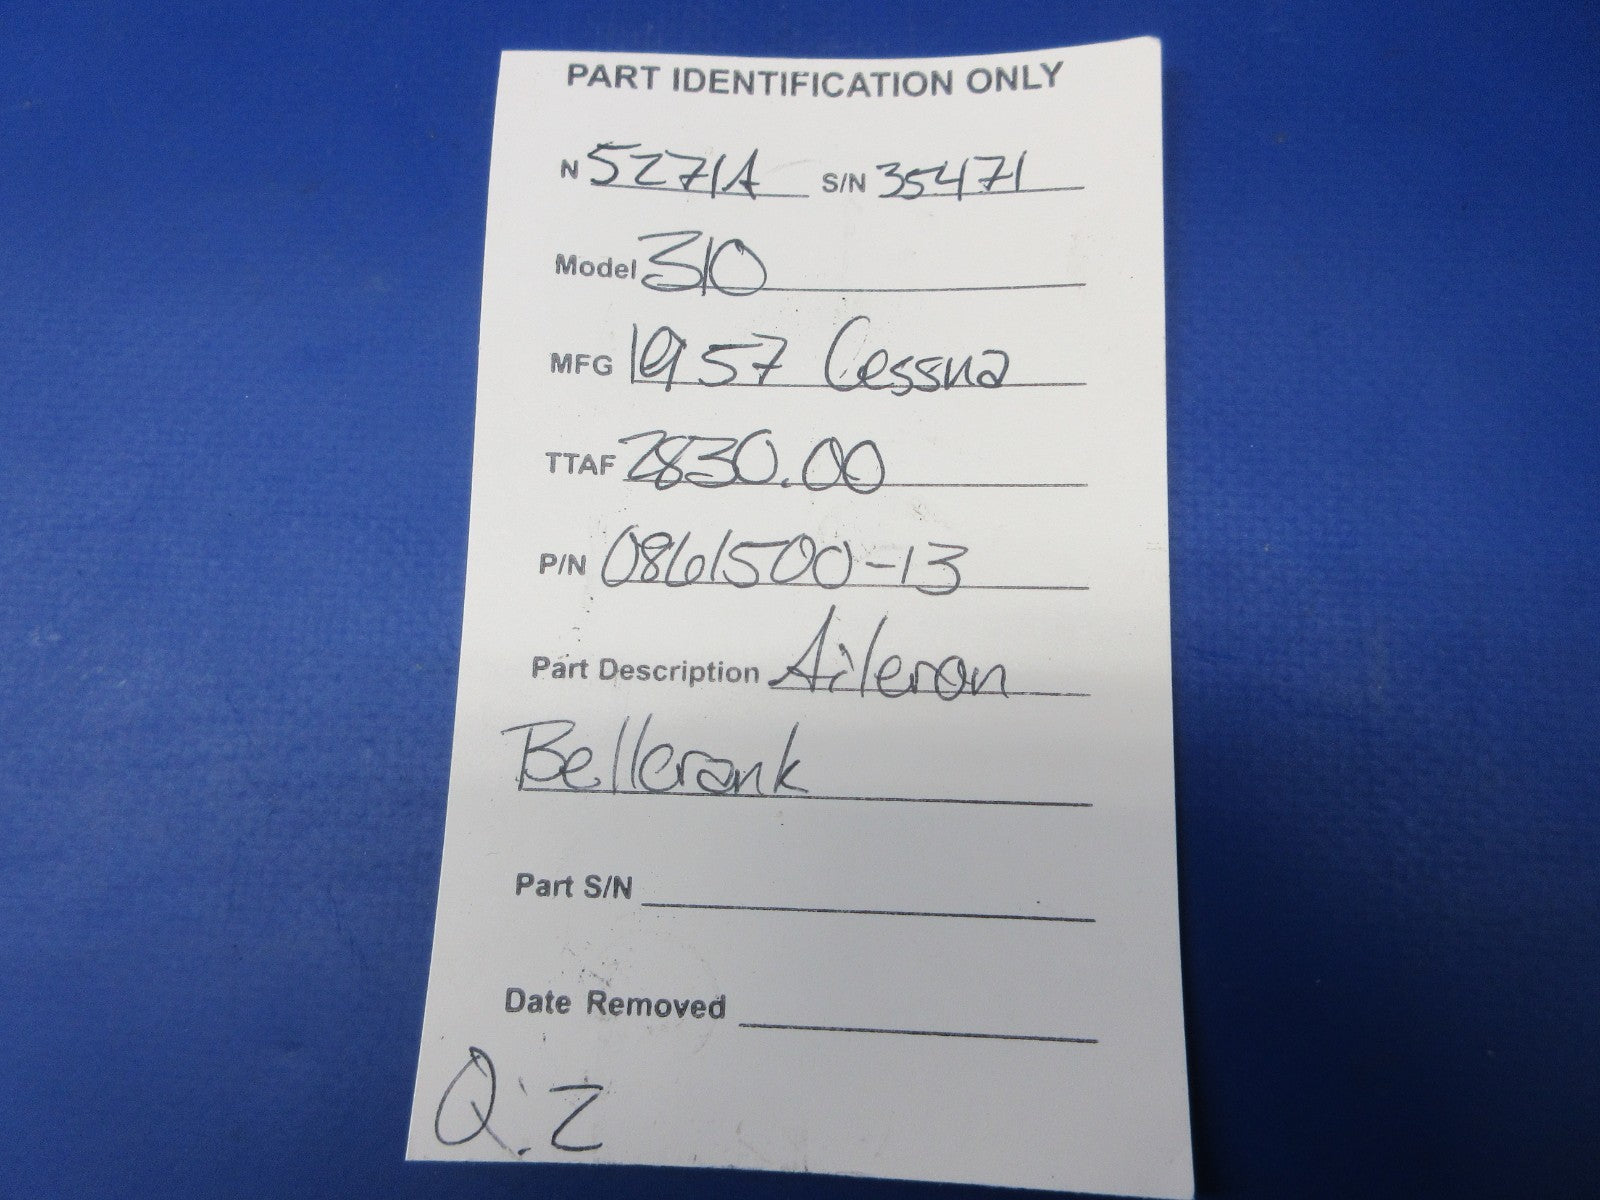 PART IDENTIFICATION ONLY
N 5271A S/N 35471
Model 310
MFG 1957 Cessna
TTAF 2830.00
P/N 0861500-13
Part Description Aileron
Bellcrank
Part S/N
Date Removed
Q: 2